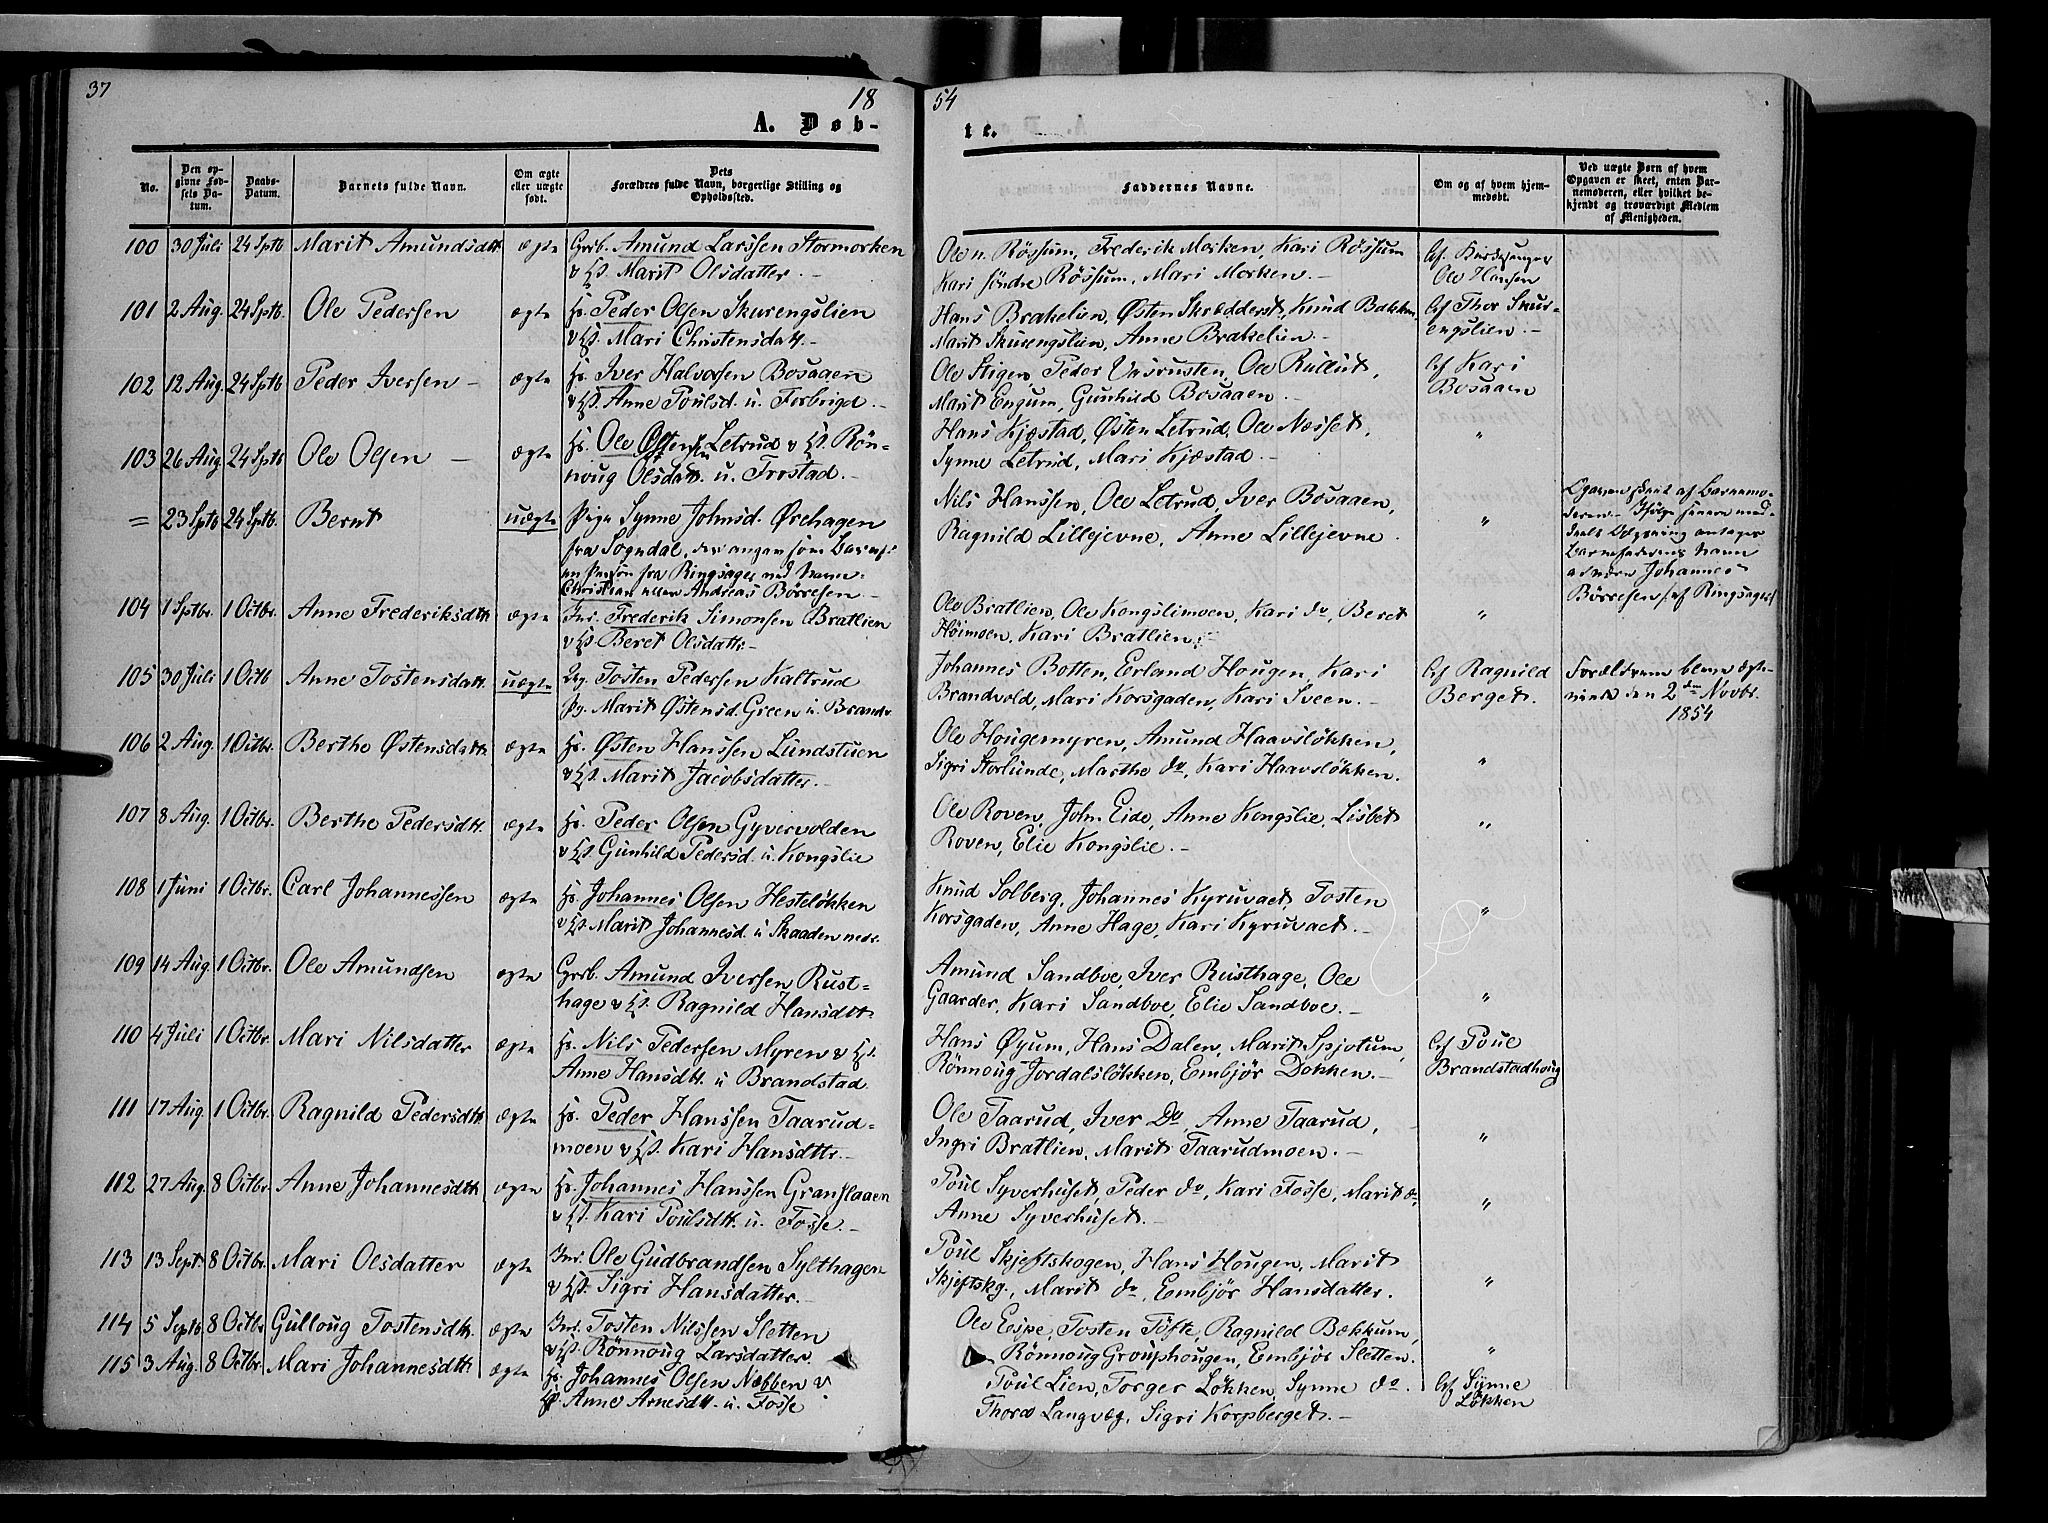 37
18
54
A. Døb-
te.
No.
Den op-
givne Fød-
sels Da-
tum.
Daabs-
Datum.
Barnets fulde Navn.
Om ægte
eller uægte
født.
Dets
Forældres fulde Navn, borgerlige Stilling og
Opholdssted.
Faddernes Navne.
Om og af hvem hjem-
medøbt.
Ved uægte Børn af hvem
Opgaven er skeet, enten Bar-
nemoderen, eller hvilket be-
kjendt og troværdigt Medlem
af Menigheden.
100 30 Juli 24 Sptb Marit Amundsdtt. ægte Grb. Amund Larssen Stormorken
v. Marit Olsdatter.
Ole n. Røssum, Frederik Morken, Kari Røssum
Kari søndre Røssum, Mari Morken. –
Af Kirkesanger
Ole Hansen
101 2 Aug. 24 Sptb. Ole Pedersen ægte Hs. Peder Olsen Skurengslien
v. Mari Christensdatt. –
Hans Brakelien, Østen Skrædderst., Knud Bakken,
Marit Skurengslien, Anne Brakelien. –
Af Thor Skur-
engslien. –
102 12 Aug. 24 Sptb Peder Iversen – ægte Hs. Iver Halvorsen Bosaaen
v. Anne Poulsd. u. Forbrigd. –
Ole Stigen, Peder Vasrusten, Ole Rullut,
Marit Engum, Gunhild Bosaaen. –
Af Kari
Bosaaen
103 26 Aug. 24 Sptb Ole Olsen – ægte Hs. Ole Østensen Letrud v. Røn-
noug Olsdatt. u. Frostad. –
Hans Kjæstad, Østen Letrud, Ole Næsset,
Synne Letrud, Mari Kjæstad. –
"
= 23 Sptb 24 Sptb. Bernt uægte Pige Synne Johnsd. Ørehagen
fra Sogndal, der angav som Barnef:
en Person fra Ringsager med Navn
Christian eller Andreas Börresen –
Nils Hanssen, Ole Letrud, Iver Bosaaen,
Ragnild Lillejevne, Anne Lillejevne.
"
Opgaven skeet af Barnemo-
deren.
Barnefaderens Navn
at være Johannes
Börresen af Ringsager
104 1 Sptbr. 1 Octbr. Anne Frederiksdtt. ægte Inr. Frederik Simonsen Bratlien
v. Beret Olsdattr. –
Ole Bratlien, Ole Kongslimoen, Kari do, Beret
Høimoen, Kari Bratlien. –
"
105 30 Juli 1 Octb Anne Tostensdatt. uægte Ug. Tosten Pedersen Kaltrud
Pg. Marit Østensd. Green u. Brandv.
Johannes Botten, Erland Hougen, Kari
Brandvold, Mari Korsgaden, Kari Sveen. –
Af Ragnild
Berget.
Forældrene bleve ægte-
viede den 2den Novbr.
1854
106 2 Aug. 1 Octbr. Berthe Østensdatt. ægte Hs. Østen Hanssen Lundstuen
v. Marit Jacobsdatter. –
Ole Hougemyren, Amund Haavsløkken,
Sigri Storlunde, Marthe do, Kari Haavsløkken.
"
107 8 Aug. 1 Octbr. Berthe Pedersdtt. ægte Hs. Peder Olsen Gyvervolden
v. Gunhild Pedersd. u. Kongslie
Ole Roven, John Eide, Anne Kongslie, Lisbet
Roven, Elie Kongslie. –
"
108 1 Juni 1 Octbr. Carl Johannessen ægte Hs. Johannes Olsen Hesteløkken
v. Marit Johannesd. u Skaaden nedr.
Knud Solberg, Johannes Kyruvaet, Tosten
Korsgaden, Anne Hage, Kari Kyruvaet. –
"
109 14 Aug. 1 Octbr. Ole Amundsen ægte Grb. Amund Iversen Rust-
hage v. Ragnild Hansdtt.
Amund Sandboe, Iver Rusthage, Ole
Gaarder, Kari Sandboe, Elie Sandboe. –
"
110 4 Juli 1 Octbr. Mari Nilsdatter ægte Hs. Nils Pedersen Myren v.
Anne Hansdtt. u Brandstad
Hans Øyum, Hans Dalen, Marit Spjotum,
Rönnoug Jordalsløkken, Embjör Dokken. –
Af Poul
Brandstadhoug
111 17 Aug. 1 Octbr. Ragnild Pedersdtt. ægte Hs. Peder Hanssen Taarud-
moen v. Kari Hansdttr. –
Ole Taarud, Iver Do, Anne Taarud,
Ingri Bratlien, Marit Taarudmoen. –
"
112 27 Aug. 8 Octbr. Anne Johannesdtt. ægte Hs. Johannes Hanssen Granslaaen
v. Kari Poulsdtt. u. Fosse. –
Poul Syverhuset, Peder do, Kari Fosse, Marit do,
Anne Syverhuset. –
"
113 13 Sept. 8 Octbr. Mari Olsdatter ægte Inr. Ole Gudbrandsen Sylthagen
v. Sigri Hansdatter. –
Poul Skjeftskogen, Hans Hougen, Marit
Skjeftskg., Marit do, Embjör Hansdatter.
"
114 5 Septb 8 Octbr Gulloug Tostensdtt. ægte Inr. Tosten Nilssen Sletten
v. Rönnoug Larsdatter.
Ole Espe, Tosten Tofte, Ragnild Bækkum,
Rönnoug Grouphougen, Embjör Sletten.
"
115 3 Aug. 8 Octbr. Mari Johannesdtt. ægte Hs. Johannes Olsen Næbben v.
Anne Arnesdtt. u. Fosse
Poul Lien, Torger Løkken, Synne do.
Thora Langvæg, Sigri Korpberget. –
Af Synne
Løkken